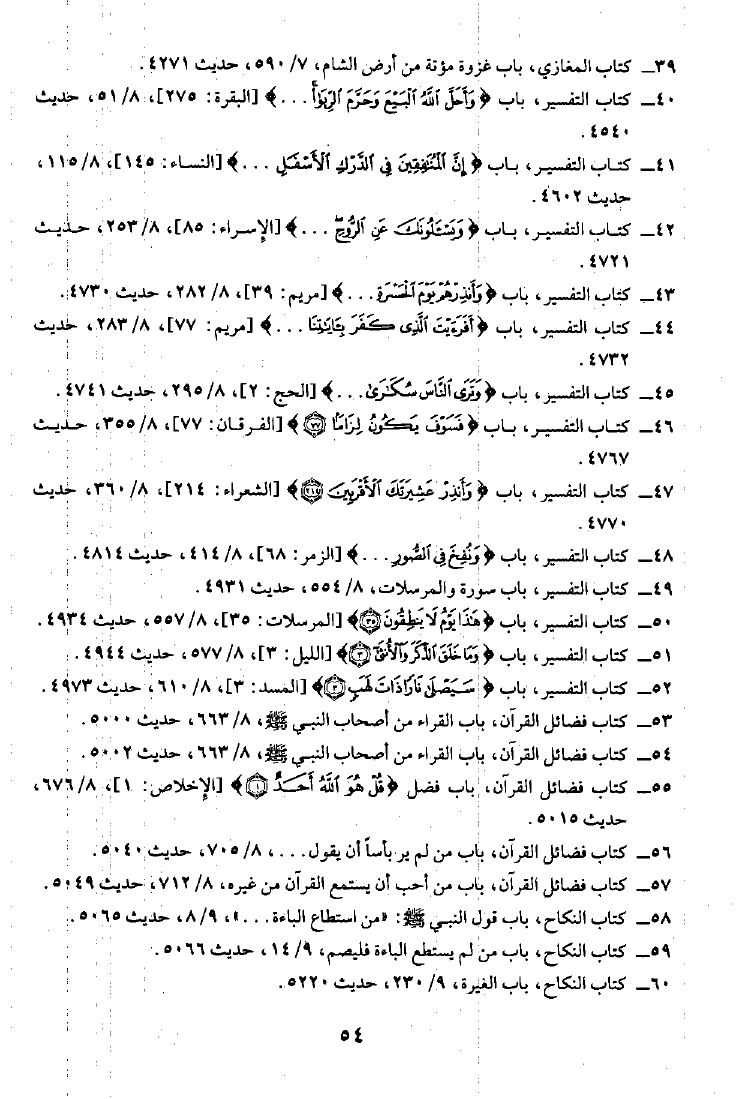 ٣٩ـ كتاب المغازي، باب غزوة مؤتة من أرض الشام، ٧/ ٥٩٠، حديث ٤٢٧١.
٤٠ـ كتاب التفسير، باب ﴿وَأَحَلَّ اللَّهُ الْبَيْعَ وَحَرَّمَ الرِّبَوٰا۟...﴾ [البقرة: ٢٧٥]، ٨/ ٥١، حديث
٤٥٤٠.
٤١ـ كتاب التفسير، باب ﴿إِنَّ الْمُنَٰفِقِينَ فِي الدَّرْكِ الْأَسْفَلِ...﴾ [النساء: ١٤٥]، ٨/ ١١٥،
حديث ٤٦٠٢.
٤٢ـ كتاب التفسير، باب ﴿وَيَسْـَٔلُونَكَ عَنِ الرُّوحِ...﴾ [الإسراء: ٨٥]، ٨/ ٢٥٣، حديث
٤٧٢١.
٤٣ـ كتاب التفسير، باب ﴿وَأَنذِرْهُمْ يَوْمَ الْحَسْرَةِ...﴾ [مريم: ٣٩]، ٨/ ٢٨٢، حديث ٤٧٣٠.
٤٤ـ كتاب التفسير، باب ﴿أَفَرَءَيْتَ الَّذِى كَفَرَ بِـَٔايَٰتِنَا...﴾ [مريم: ٧٧]، ٨/ ٢٨٣، حديث
٤٧٣٢.
٤٥ـ كتاب التفسير، باب ﴿وَتَرَى النَّاسَ سُكَٰرَىٰ...﴾ [الحج: ٢]، ٨/ ٢٩٥، حديث ٤٧٤١.
٤٦ـ كتاب التفسير، باب ﴿فَسَوْفَ يَكُونُ لِزَامًا ٧٧﴾ [الفرقان: ٧٧]، ٨/ ٣٥٥، حديث
٤٧٦٧.
٤٧ـ كتاب التفسير، باب ﴿وَأَنذِرْ عَشِيرَتَكَ الْأَقْرَبِينَ ٢١٤﴾ [الشعراء: ٢١٤]، ٨/ ٣٦٠، حديث
٤٧٧٠.
٤٨ـ كتاب التفسير، باب ﴿وَنُفِخَ فِي الصُّورِ...﴾ [الزمر: ٦٨]، ٨/ ٤١٤، حديث ٤٨١٤.
٤٩ـ كتاب التفسير، باب سورة والمرسلات، ٨/ ٥٥٤، حديث ٤٩٣١.
٥٠ـ كتاب التفسير، باب ﴿هَٰذَا يَوْمُ لَا يَنطِقُونَ ٣٥﴾ [المرسلات: ٣٥]، ٨/ ٥٥٧، حديث ٤٩٣٤.
٥١ـ كتاب التفسير، باب ﴿وَمَا خَلَقَ الذَّكَرَ وَالْأُنثَىٰ ٣﴾ [الليل: ٣]، ٨/ ٥٧٧، حديث ٤٩٤٤.
٥٢ـ كتاب التفسير، باب ﴿سَيَصْلَىٰ نَارًا ذَاتَ لَهَبٍ ٣﴾ [المسد: ٣]، ٨/ ٦١٠، حديث ٤٩٧٣.
٥٣ـ كتاب فضائل القرآن، باب القراء من أصحاب النبي ﷺ، ٨/ ٦٦٣، حديث ٥٠٠٠.
٥٤ـ كتاب فضائل القرآن، باب القراء من أصحاب النبي ﷺ، ٨/ ٦٦٣، حديث ٥٠٠٢.
٥٥ـ كتاب فضائل القرآن، باب فضل ﴿قُلْ هُوَ اللَّهُ أَحَدٌ ١﴾ [الإخلاص: ١]، ٨/ ٦٧٦،
حديث ٥٠١٥.
٥٦ـ كتاب فضائل القرآن، باب من لم ير بأساً أن يقول...، ٨/ ٧٠٥، حديث ٥٠٤٠.
٥٧ـ كتاب فضائل القرآن، باب من أحب أن يستمع القرآن من غيره، ٨/ ٧١٢، حديث ٥٠٤٩.
٥٨ـ كتاب النكاح، باب قول النبي ﷺ: «من استطاع الباءة...»، ٩/ ٨، حديث ٥٠٦٥.
٥٩ـ كتاب النكاح، باب من لم يستطع الباءة فليصم، ٩/ ١٤، حديث ٥٠٦٦.
٦٠ـ كتاب النكاح، باب الغيرة، ٩/ ٢٣٠، حديث ٥٢٢٠.
٥٤